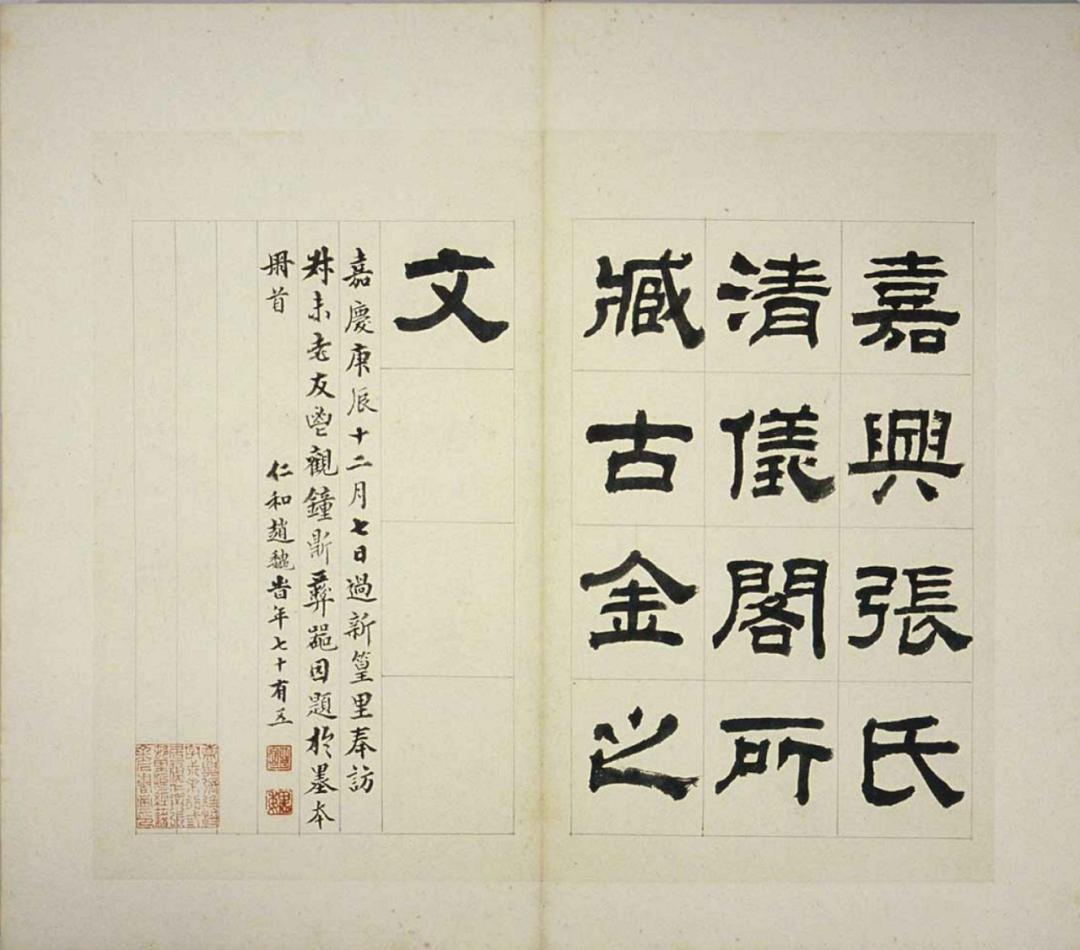 嘉興張氏
清儀閣所
臧古金之
文
嘉慶庚辰十二月七日過新篁里奉訪
尗未老友鬯觀鐘鼎彝器因題於墨本
冊首
仁和趙魏旹年七十有五